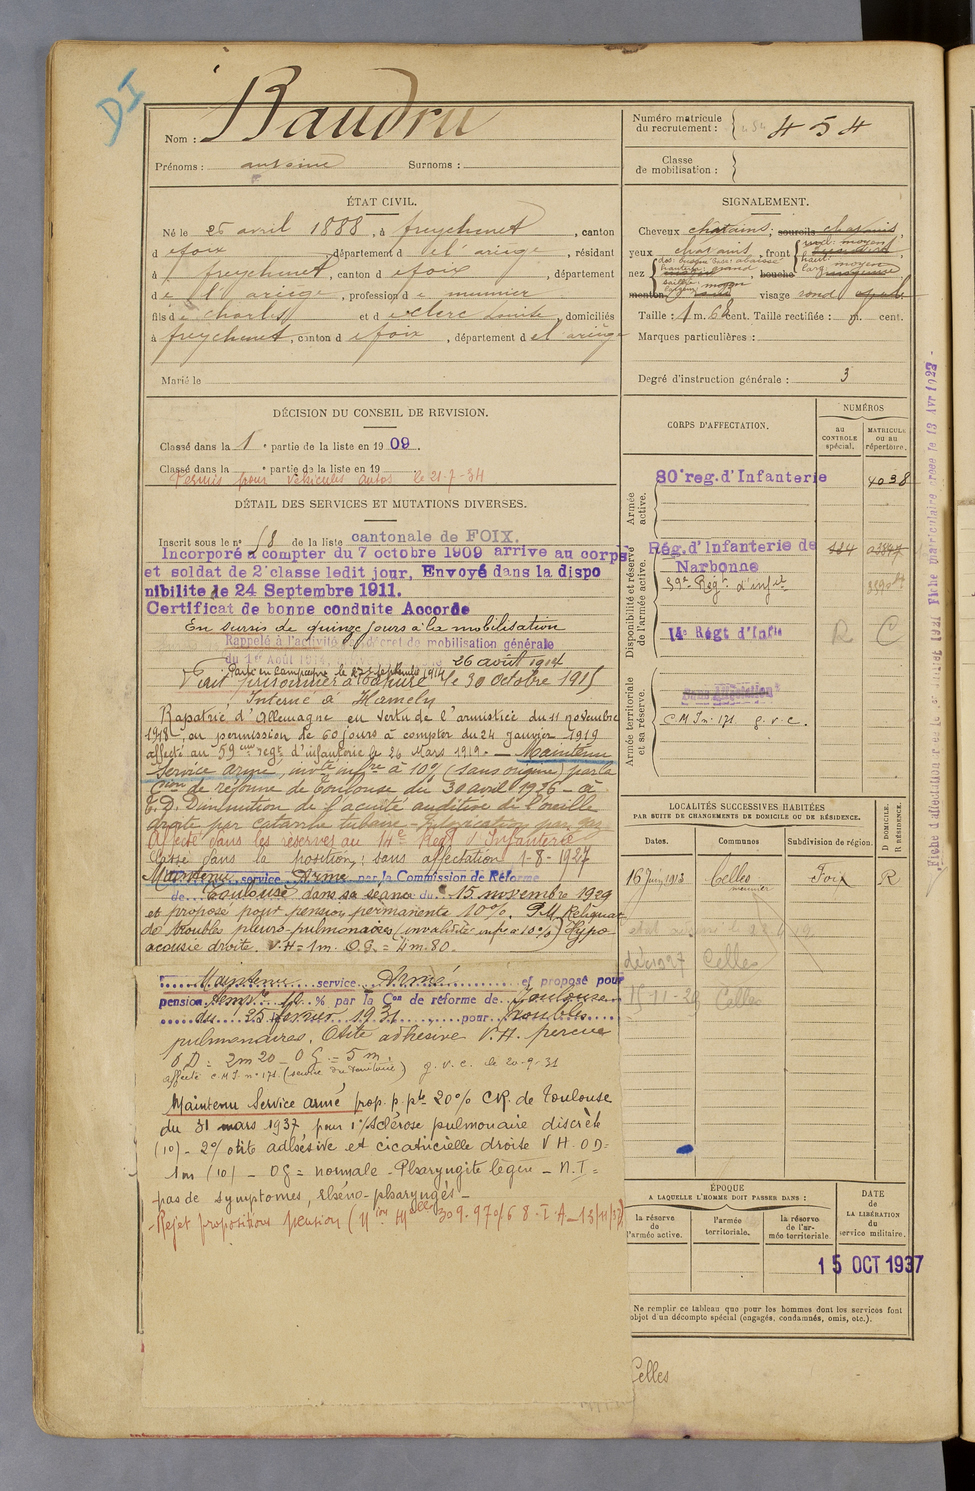 DI
Nom : Baudru
Prénoms : antoine Surnoms :
Numéro matricule du recrutement : 454
Classe de mobilisation :
ÉTAT CIVIL.
Né le 25 avril 1888, à freychenet, canton
d e foix, département d e l'ariège, résidant
à freychenet, canton d e foix, département
d e l'ariège, profession d e meunier
fils d e Charles et d e Clerc Louise, domiciliés
à freychenet, canton d e foix, département d e l'ariège
Marié le
SIGNALEMENT.
Cheveux chatains; sourcils chatains,
yeux chatains, front
moyen
haut: moyen
nez
grand, bouche moyenne
menton rond visage rond
Taille : 1 m. 68 cent. Taille rectifiée : m. cent.
Marques particulières :
Degré d'instruction générale : 3
DÉCISION DU CONSEIL DE REVISION.
Classé dans la 1e partie de la liste en 1909.
Classé dans la e partie de la liste en 19
Permis pour véhicules autos le 21-7-34
DÉTAIL DES SERVICES ET MUTATIONS DIVERSES.
Inscrit sous le n° 58 de la liste cantonale de FOIX.
Incorporé a compter du 7 octobre 1909 arrive au corps
et soldat de 2e classe ledit jour, Envoyé dans la dispo
nibilite le 24 Septembre 1911.
Certificat de bonne conduite Accorde
En sursis de quinze jours à la mobilisation
Rappelé à l'activité décret de mobilisation générale
du 1er Août 1914, 26 août 1914
Parti en campagne le septembre 1914
Fait prisonnier à Tahure le 30 octobre 1915
Interné à Hameln
Rapatrié d'Allemagne en vertu de l'armistice du 11 novembre
1918, en permission de 60 jours à compter du 24 janvier 1919
affecté au 59eme regt d'infanterie le 26 Mars 1919. Maintenu
Service armé, invté infre à 10% (sans origine) par la
Cion de réforme de Toulouse du 30 avril 1926 - a
T.D. Diminution de l'acuité auditive de l'oreille
droite par catarrhe tubaire - Intoxication par gaz
Affecté dans les réserves au 14e Regt d'Infanterie
Classé dans la position: sans affectation 1-8-1927
Maintenu service Armé par la Commission de Réforme
de Toulouse dans sa séance du 15 novembre 1929
et proposé pour pension permanente 10%. P.M. Reliquat
de troubles pleuro-pulmonaires (invalidité infre à 10%) Hypo-
acousie droite. V.H = 1m. OG. = 4m.80.
Maintenu service Armé et proposé pour
pension 10 % par la Con de réforme de Toulouse
du 25 fevrier 1931 pour troubles
pulmonaires. Otite adhésive V.H. percue
OD = 2m20 - OG = 5 m
affecté C.M.I. n° 171 (service du Territoire) g.v.c. le 20-9-31
Maintenu Service armé prop. p. pte 20% CR. de Toulouse
du 31 mars 1937 pour 1°/ Sclérose pulmonaire discrète
(10) - 2°/ otite adhésive et cicatricielle droite V H. OD=
1m (10) - OG = normale - Pharyngite légère - N.I =
pas de symptomes, Rhéno-pharyngés -
Rejet propositions pension
CORPS D'AFFECTATION.
NUMÉROS
au CONTROLE spécial.
MATRICULE ou au répertoire.
Armée active.
80e reg. d'Infanterie 4038
Disponibilité et réserve de l'armée active.
Rég. d'Infanterie de
Narbonne
59e Regt d'Infie
14e Régt d'Infie R C
Armée territoriale et sa réserve.
Sans Affectation
C.M.I n° 171 g.v.c.
LOCALITÉS SUCCESSIVES HABITÉES
PAR SUITE DE CHANGEMENTS DE DOMICILE OU DE RÉSIDENCE.
Dates. Communes Subdivision de région. D DOMICILE. R RÉSIDENCE.
16 juin 1913 Celles Foix R
meunier
déc 1927 Celles
15-11-29 Celles
ÉPOQUE
A LAQUELLE L'HOMME DOIT PASSER DANS :
la réserve de l'armée active.
l'armée territoriale.
la réserve de l'armée territoriale.
DATE DE LA LIBÉRATION du service militaire.
15 OCT 1937
Ne remplir ce tableau que pour les hommes dont les services font
objet d'un décompte spécial (engagés, condamnés, omis, etc.).
Celles